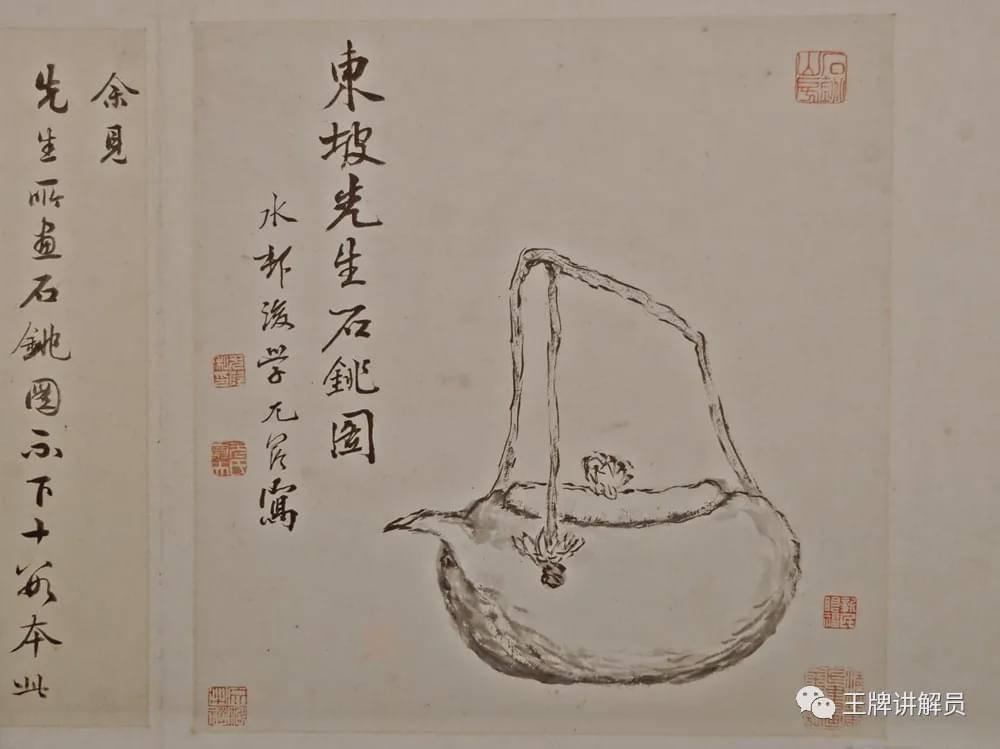 石銚山房
東坡先生石銚圖
水邨後學尤蔭寫
余見
先生所畫石銚圖不下十數本此
王牌讲解员